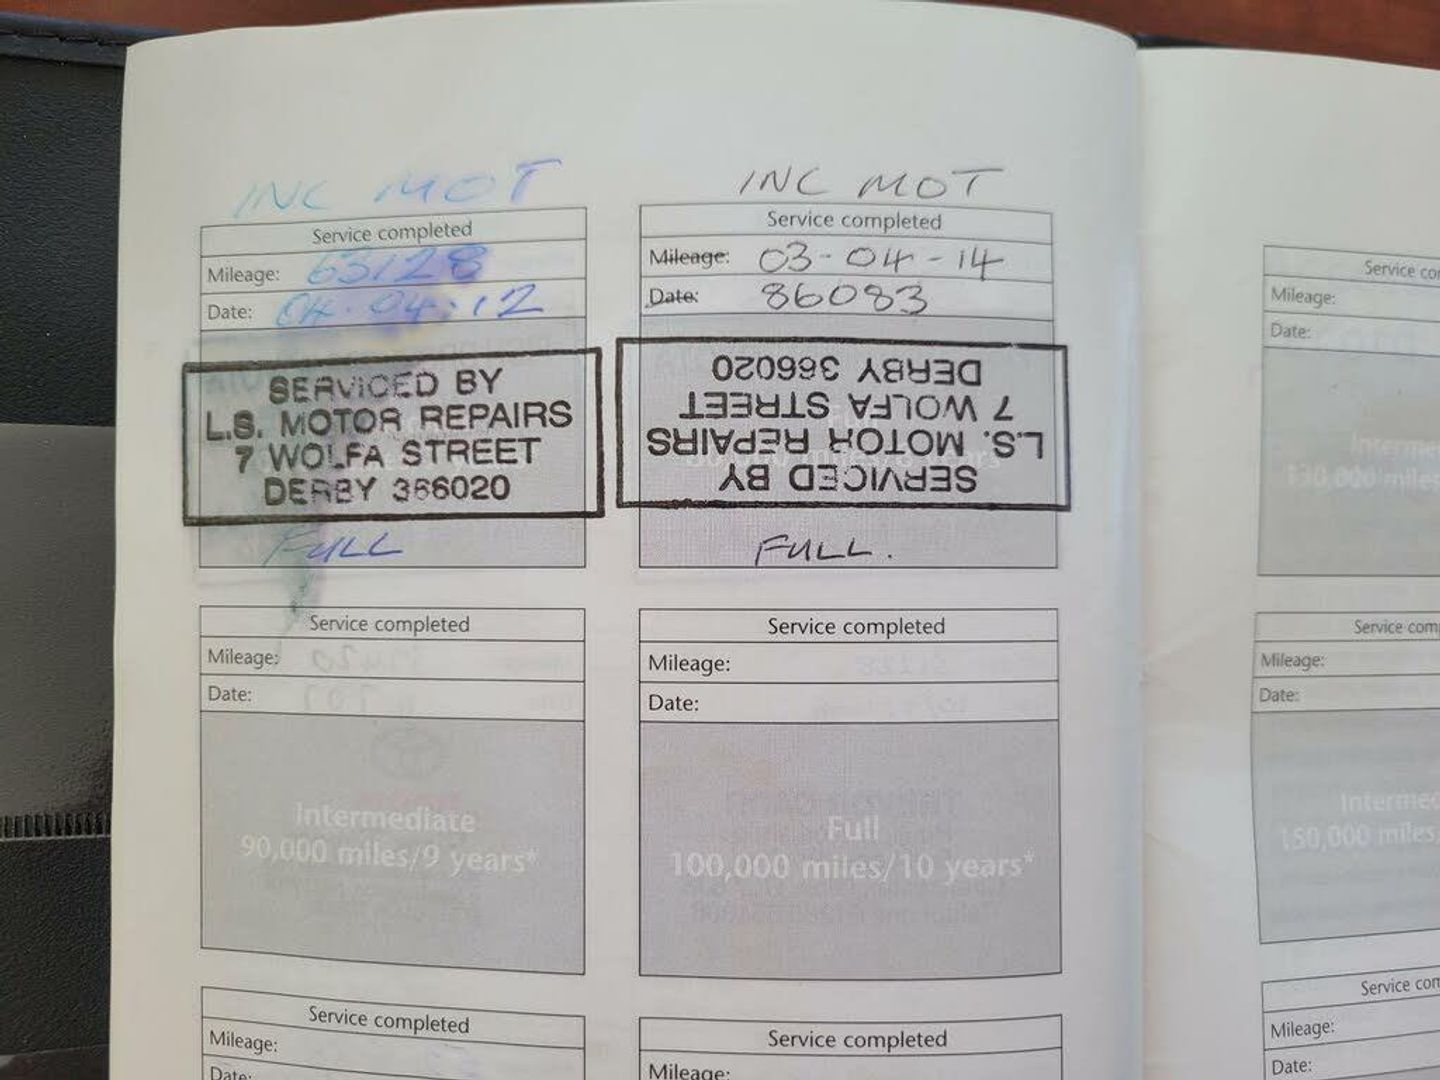 INC MOT
Service completed
Mileage: 63128
Date: 04.04:12
SERVICED BY
L.S. MOTOR REPAIRS
7 WOLFA STREET
DERBY 366020
FULL
INC MOT
Service completed
Mileage: 03-04-14
Date: 86083
SERVICED BY
L.S. MOTOR REPAIRS
7 WOLFA STREET
DERBY 366020
FULL.
Service completed
Mileage:
Date:
Intermediate
90,000 miles/9 years*
Service completed
Mileage:
Date:
Full
100,000 miles/10 years*
Service completed
Mileage:
Date:
Service completed
Mileage:
Service
Mileage:
Date:
130,000 miles
Service
Mileage:
Date:
150,000 miles
Service
Mileage:
Date: